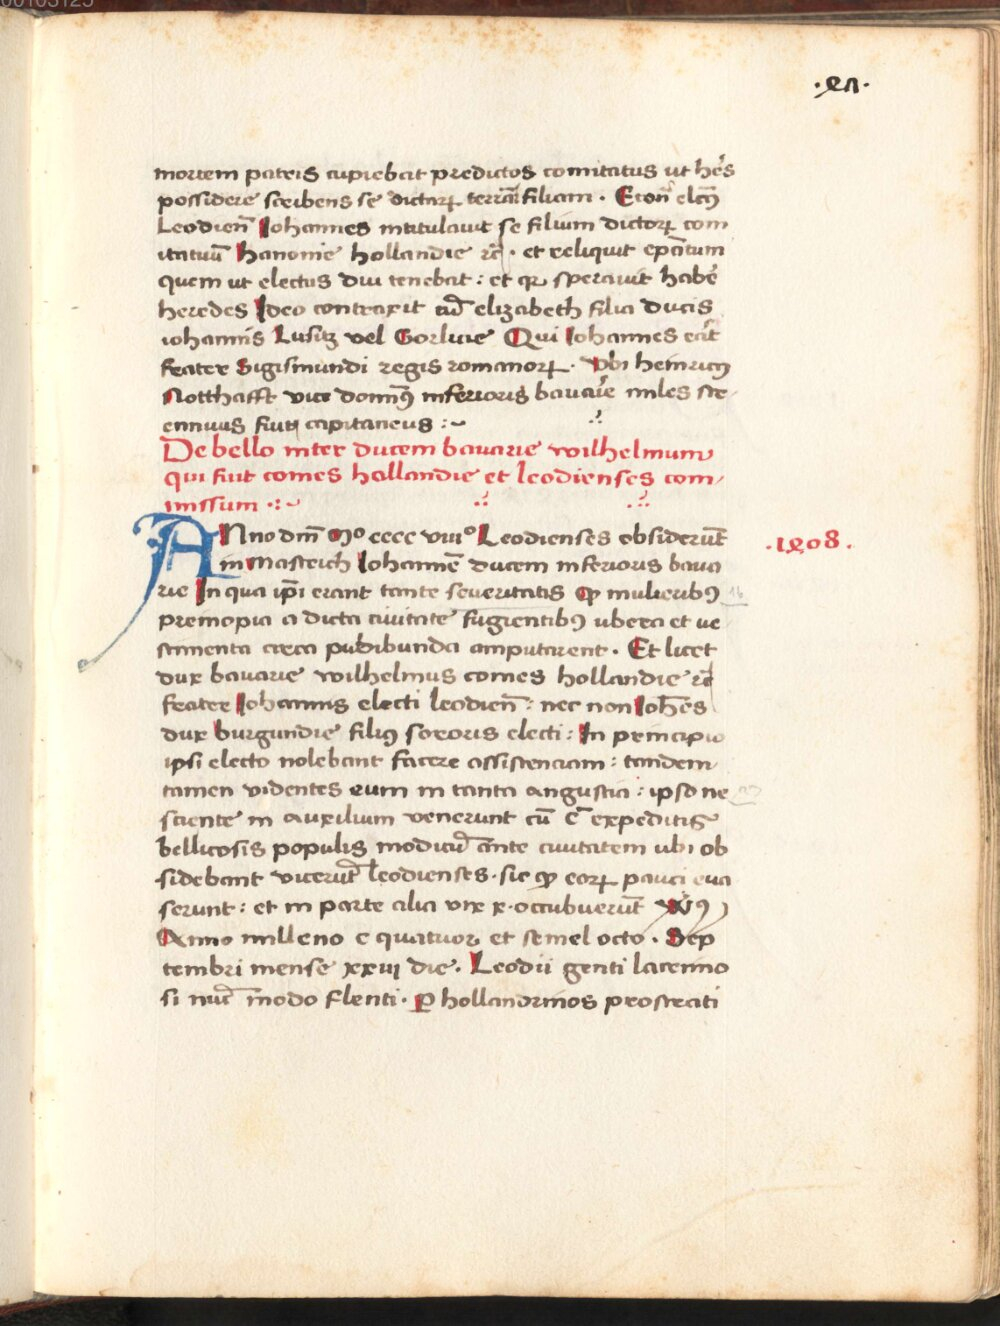 00103125
·47·
mortem patris cupiebat predictos comitatus ut hẽs
possidere scribens se dictaꝝ terraꝝ filiam · Econ̄ elcꝰ
Leodien̄ Johannes intitulauit se filium dictoꝝ com
itatuū hanonie hollandie rc̄ · et reliquit ep̄atum
quem ut electus diu tenebat : et qꝛ sperauit habẽ
heredes Ideo contraxit cū elizabeth filia ducis
iohannis Lusitz vel Gorlicie Qui Johannes erat
frater Sigismundi regis romanoꝝ · Vbi heinricꝰ
Notthafft vice domnꝰ inferioris bauarie miles stre
ennuus fuit capitaneus :~
De bello inter ducem bauarie wilhelmum
qui fuit comes hollandie et leodienses com/
missum ·:~
ANno dm̄ Mᵒ cccc viiiᵒ Leodienses obsiderūt
·1408·
in Mastrich Johannē ducem inferioris baua
rie In qua ip̄i erant tante seueritatis Qꝫ mulieribꝰ
16
premopia a dicta ciuitate fugientibꝰ ubera et ve
stimenta circa pudibunda amputarent · Et licet
dux bauarie wilhelmus comes hollandie rc̄
frater Johannis electi leodien̄ : nec non Joh̄es
dux burgundie filiꝰ sororis electi : In principio
ipsi electo nolebant facere assistenciam : tandem
tamen videntes eum in tanta angustia : ipso ne
sciente in auxilium venerunt cū c̄ expeditis
bellicosis populis modicū ante ciuitatem ubi ob
sidebant vicerūt leodienses · sic qꝫ eoꝝ pauci eua
serunt : et in parte alia vix x · occubuerūt Vꝰ̃
Anno milleno c quatuor et semel octo · Sep
tembri mense xxiii die · Leodii genti lacrimo
si nūc modo flenti · Ꝑ hollandrinos prostrati